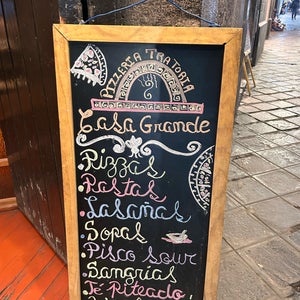 PIZZERIA TRATTORIA
Casa Grande
Pizzas
Pastas
Lasañas
Sopas
Pisco Sour
Sangrias
Té Piteado